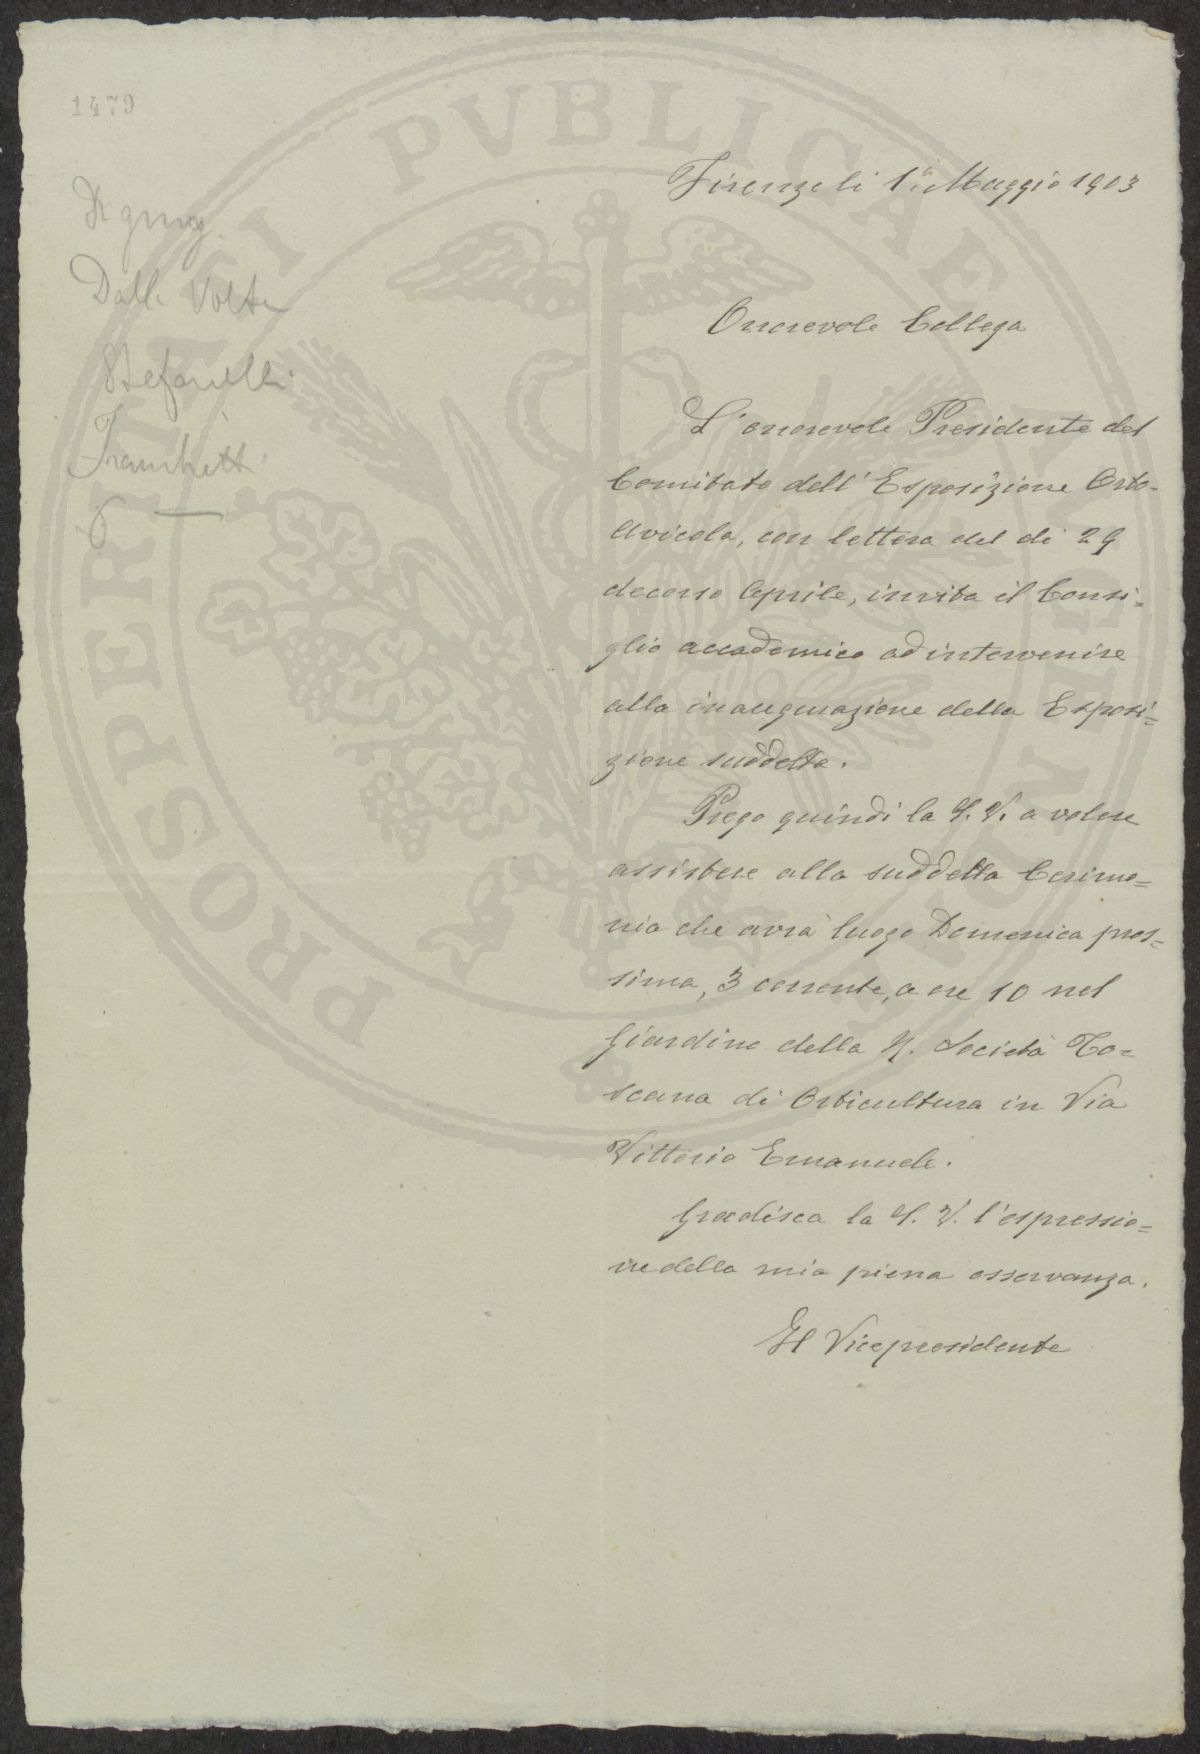 1479
Dalla Volta
Stefanelli
Franchetti
Firenze li 1° Maggio 1903
Onorevole Collega
L'onorevole Presidente del
Comitato dell'Esposizione Orto-
Avicola, con lettera del di 29
decorso Aprile, invita il Consi=
glio accademico ad intervenire
alla inaugurazione della Esposi=
zione suddetta.
Prego quindi la S. V. a volere
assistere alla suddetta Cerimo=
nia che avrà luogo Domenica pros=
sima, 3 corrente, a ore 10 nel
Giardino della R. Società To=
scana di Orticultura in Via
Vittorio Emanuele.
Gradisca la S. V. l'espressio=
ne della mia piena osservanza.
Il Vicepresidente
PROSPERITATI PVBLICAE AVGENDAE